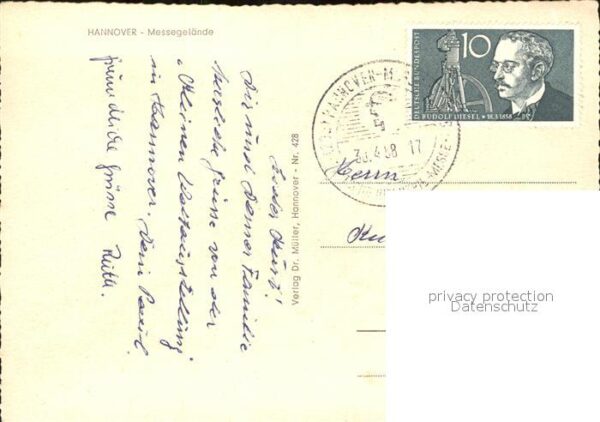 HANNOVER - Messegelände
Lieber Kurt!
Dir und Deiner Familie
herzliche Grüsse von der
"Kleinen Weltausstellung"
in Hannover. Dein
freundliche Grüsse Ruth.
Verlag Dr. Müller, Hannover - Nr. 428
HANNOVER-M
30.4.58 17
MESSE
10
DEUTSCHE BUNDESPOST
RUDOLF DIESEL
18.3.1858
Herrn
privacy protection
Datenschutz